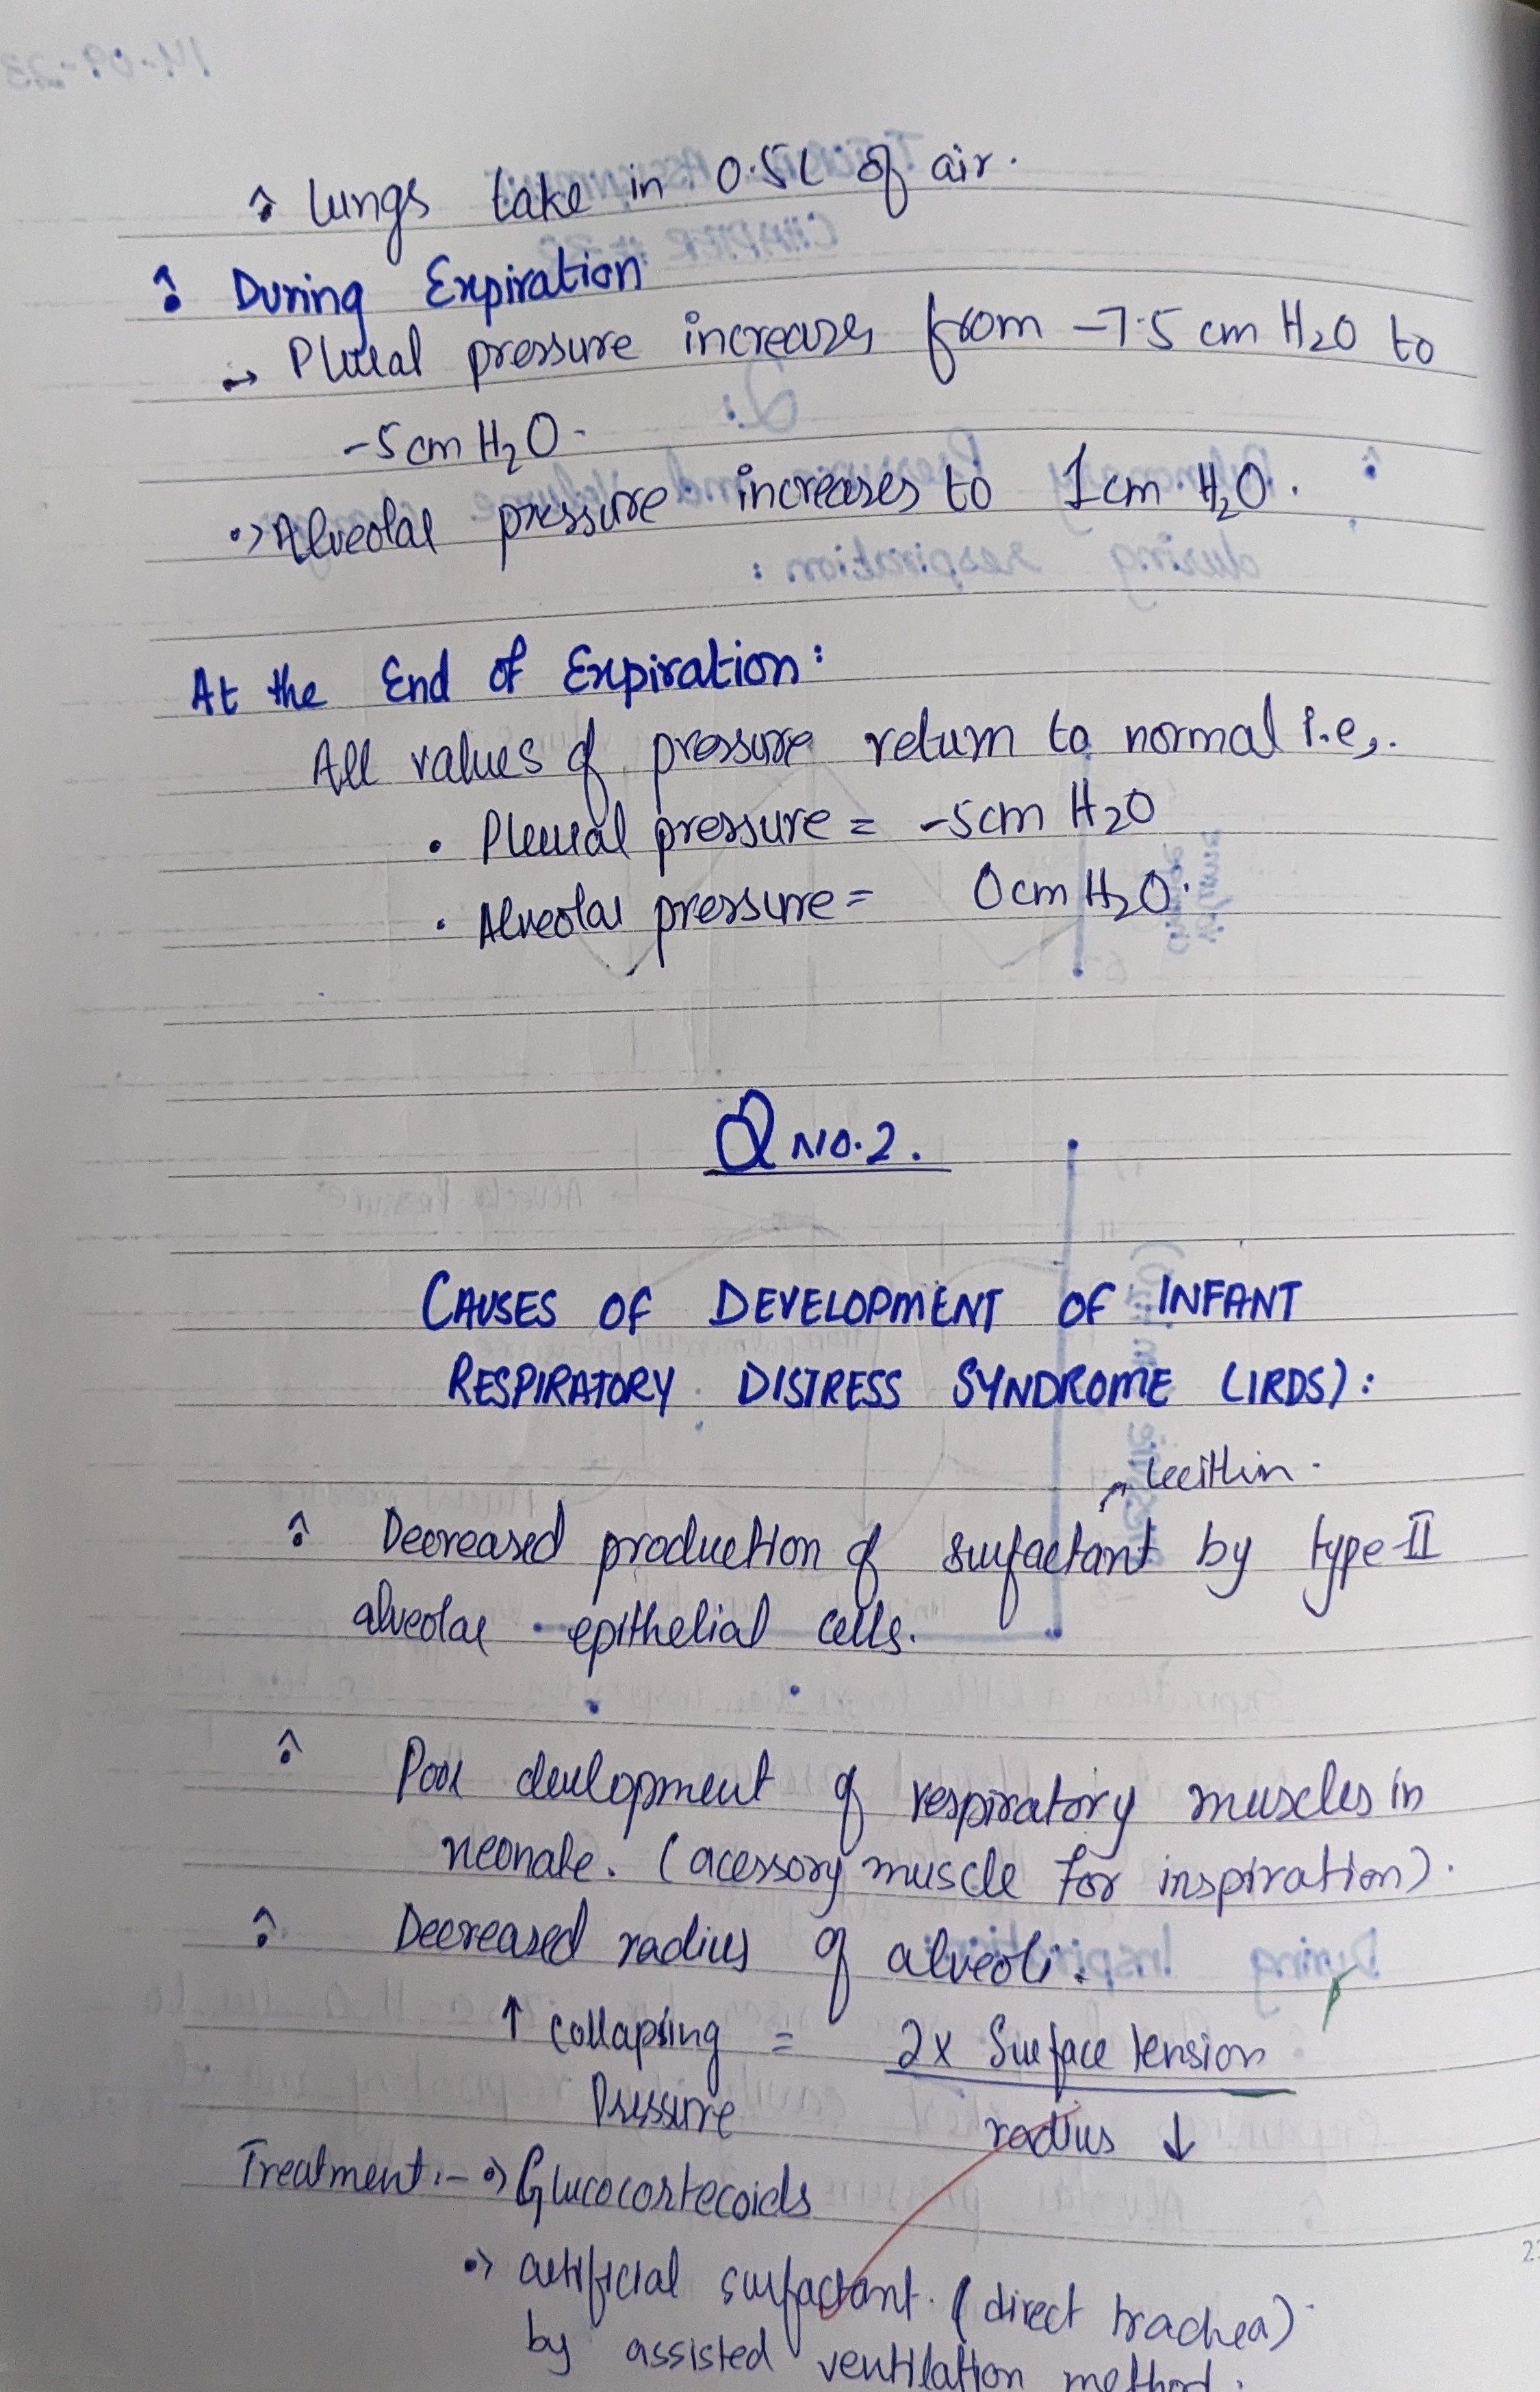 lungs take in 0.5L of air.
During Expiration
→ Plueal pressure increases from -7.5 cm H2O to
-5 cm H2O.
Alveolar pressure increases to 1cm H2O.
At the End of Expiration:
All values of pressure return to normal i.e,.
• Pleural pressure = -5cm H2O
• Alveolar pressure = 0cm H2O.
Q NO.2.
CAUSES OF DEVELOPMENT OF INFANT
RESPIRATORY DISTRESS SYNDROME (IRDS):
lecithin.
Decreased production of surfactant by type-II
alveolar epithelial cells.
Poor development of respiratory muscles in
neonate. (acessory muscle for inspiration).
Decreased radius of alveoli.
↑ collapsing = 2x Surface tension
Pressure radius ↓
Treatment:- Glucocortecoids
artificial surfactant. (direct trachea)
by assisted ventilation method.